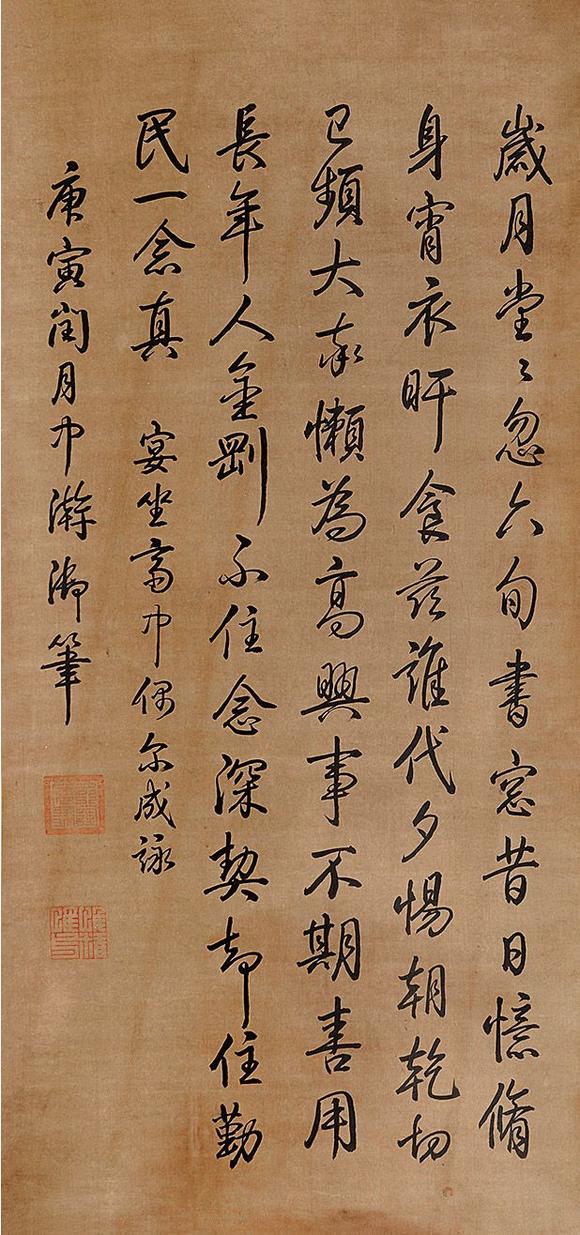 歲月堂〻忽六旬書窓昔日憶脩
身宵衣旰食茲誰代夕惕朝乾切
已頻大率懶為高興事不期善用
長年人金剛不住念深契却住勤
民一念真 宴坐齋中偶尔成詠
庚寅閏月中澣御筆
惟精惟一